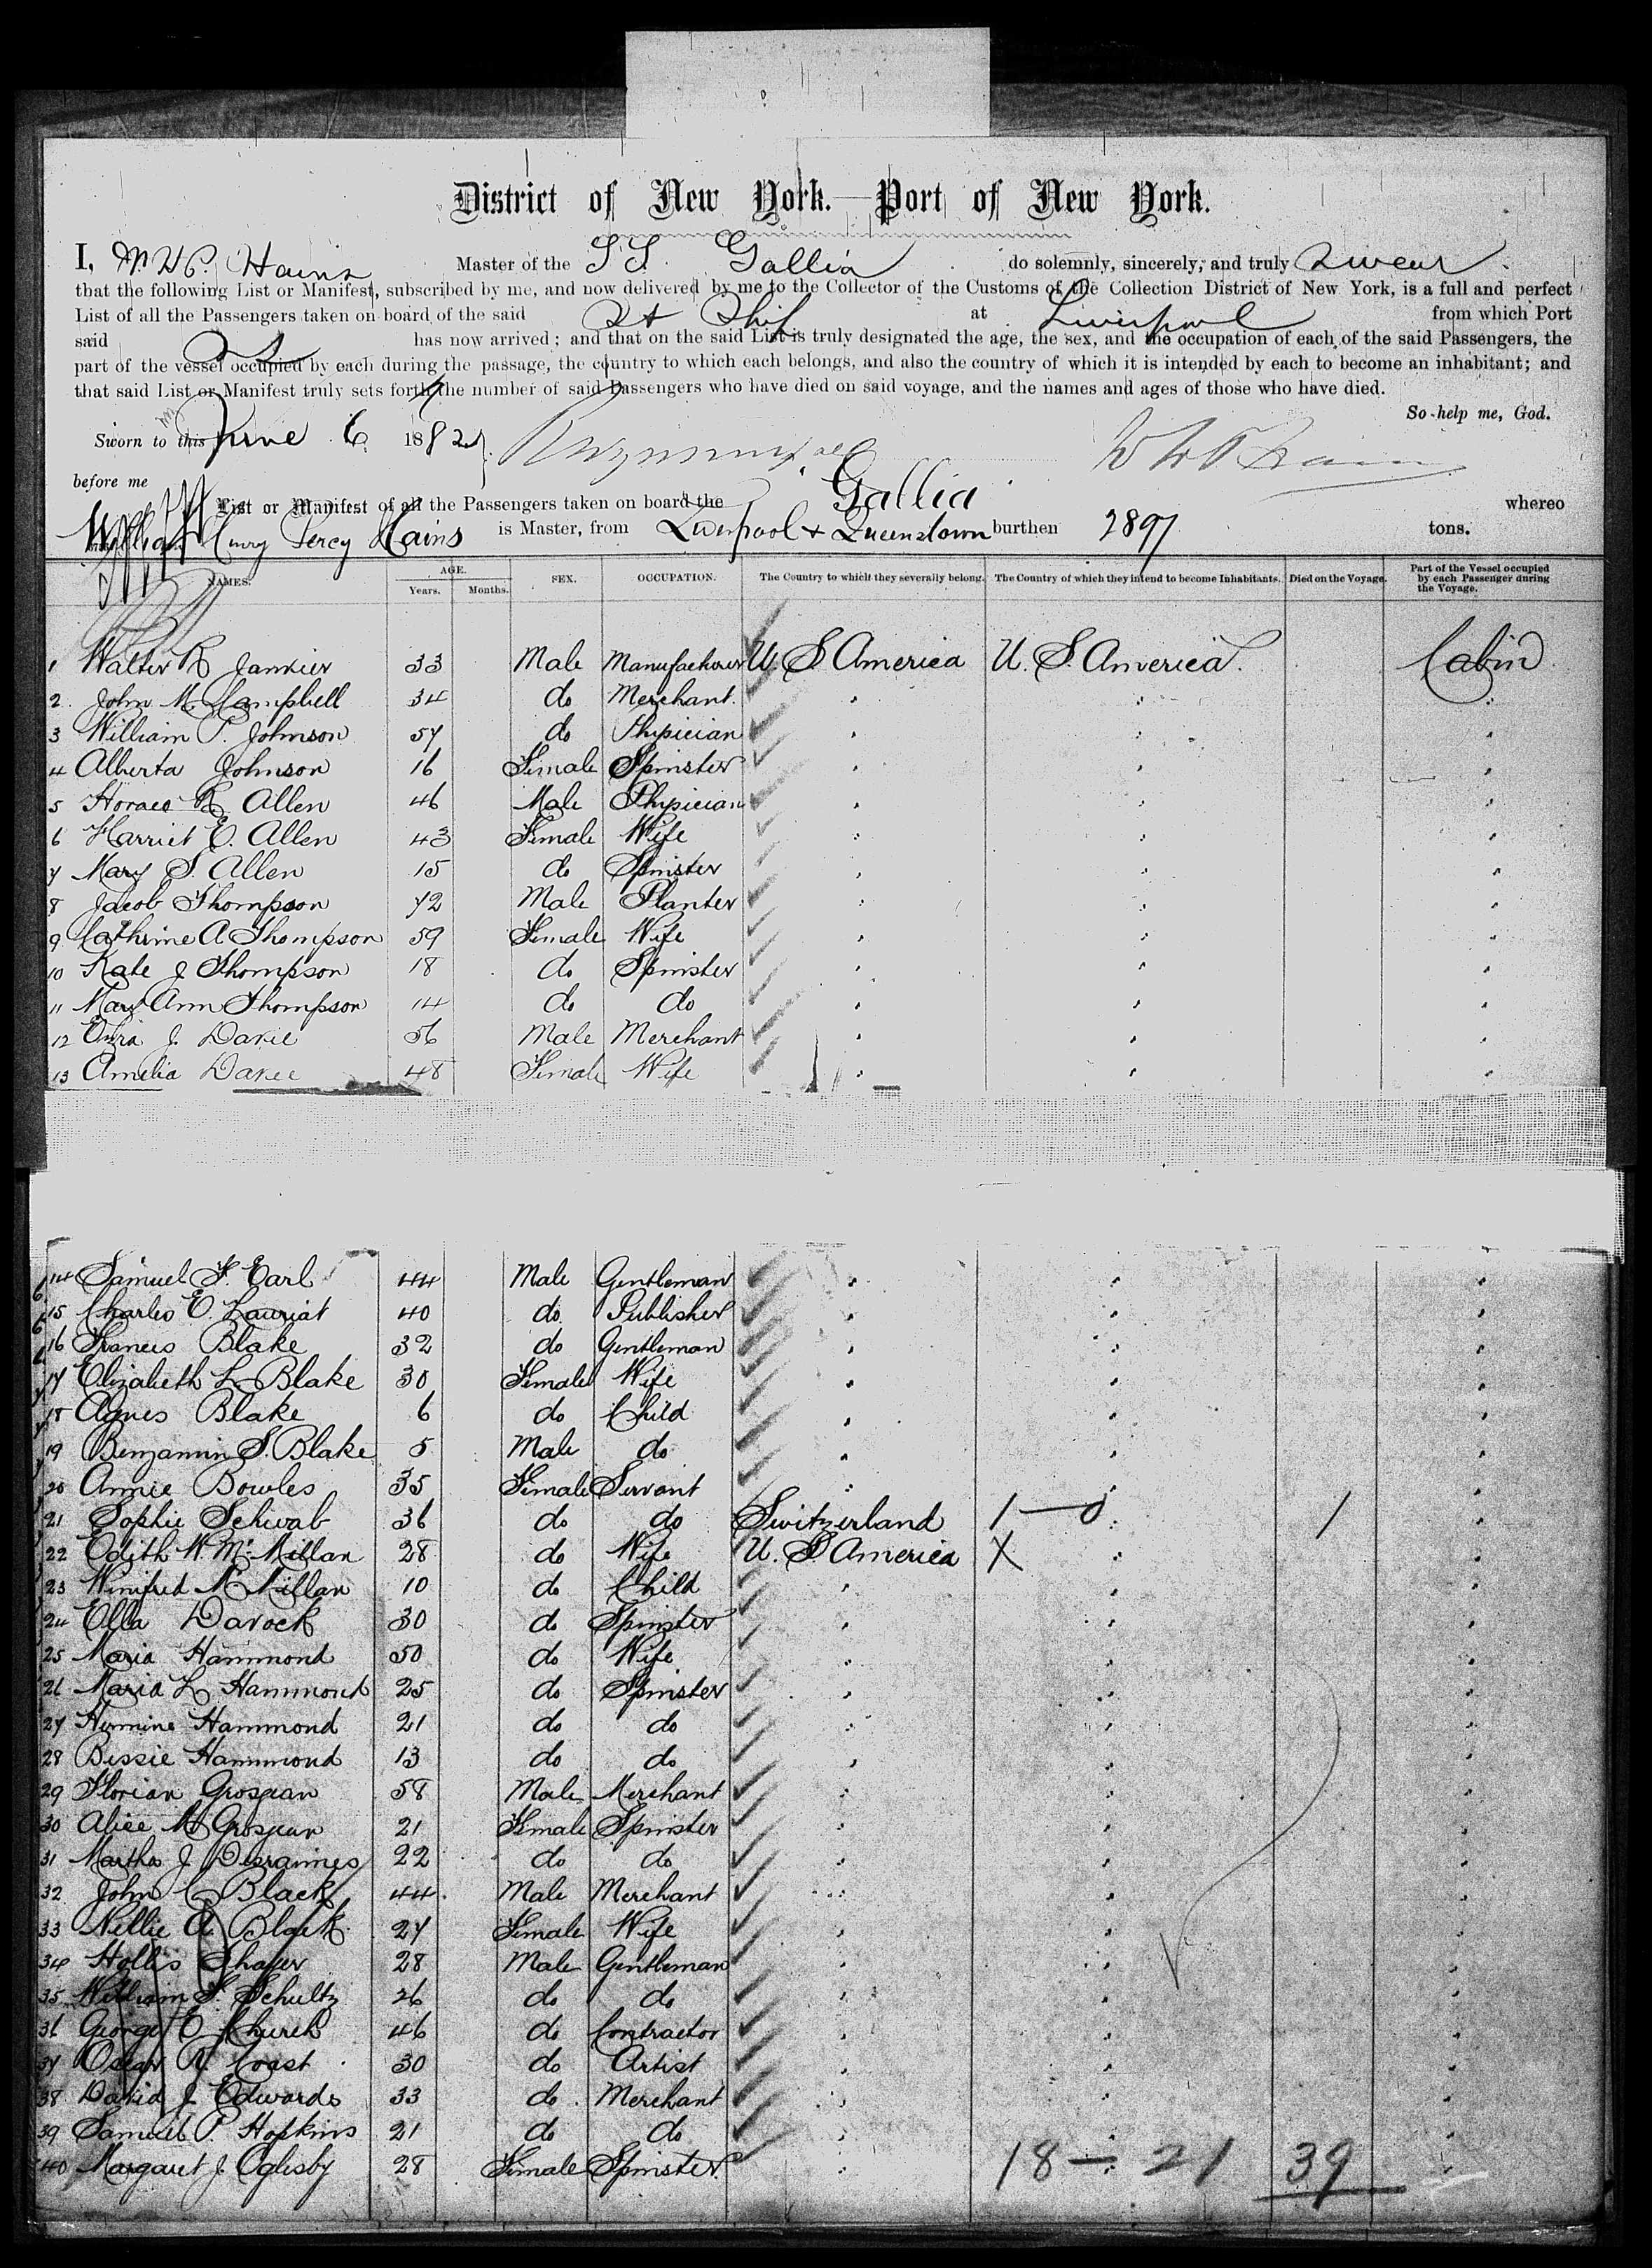 District of New York.—Port of New York.
I, W. H. P. Hains Master of the SS. Gallia do solemnly, sincerely, and truly Swear
that the following List or Manifest, subscribed by me, and now delivered by me to the Collector of the Customs of the Collection District of New York, is a full and perfect
List of all the Passengers taken on board of the said St Ship at Liverpool from which Port
said has now arrived; and that on the said List is truly designated the age, the sex, and the occupation of each of the said Passengers, the
part of the vessel occupied by each during the passage, the country to which each belongs, and also the country of which it is intended by each to become an inhabitant; and
that said List or Manifest truly sets forth the number of said Passengers who have died on said voyage, and the names and ages of those who have died.
So help me, God.
Sworn to this June 6 1882
before me
List or Manifest of all the Passengers taken on board the Gallia whereo
William Henry Percy Hains is Master, from Liverpool & Queenstown burthen 2897 tons.
NAMES. AGE. Years. Months. SEX. OCCUPATION. The Country to which they severally belong. The Country of which they intend to become Inhabitants. Died on the Voyage. Part of the Vessel occupied by each Passenger during the Voyage.
1 Walter R Janvier 33 Male Manufacturer U. S America U. S. America. Cabin
2 John M. Campbell 34 do Merchant.
3 William P. Johnson 57 do Physician
4 Alberta Johnson 16 Female Spinster
5 Horace R. Allen 46 Male Physician
6 Harriet E. Allen 43 Female Wife
7 Mary S. Allen 15 do Spinster
8 Jacob Thompson 72 Male Planter
9 Cathrine A Thompson 59 Female Wife
10 Kate J Thompson 18 do Spinster
11 Mary Ann Thompson 14 do do
12 J. Davie 56 Male Merchant
13 Amelia Davee 48 Female Wife
14 Samuel F. Earl 44 Male Gentleman
15 Charles E. Lauriat 40 do Publisher
16 Francis Blake 32 do Gentleman
17 Elizabeth L Blake 30 Female Wife
18 Agnes Blake 6 do Child
19 Benjamin S. Blake 5 Male do
20 Annie Bowles 35 Female Servant
21 Sophie Schwab 36 do do Switzerland 1—0 1
22 Edith W. McMillan 28 do Wife U. S America X
23 Winifred McMillan 10 do Child
24 Ella Davock 30 do Spinster
25 Maria Hammond 50 do Wife
26 Maria L Hammond 25 do Spinster
27 Hermine Hammond 21 do do
28 Bessie Hammond 13 do do
29 Florian Grosjean 58 Male Merchant
30 Alice M Grosjean 21 Female Spinster
31 Martha J 22 do do
32 John C Black 44 Male Merchant
33 Nellie A Black 27 Female Wife
34 Hollis Thayer 28 Male Gentleman
35 William F. Schultz 26 do do
36 George E Church 46 do Contractor
37 Oscar R. Coast 30 do Artist
38 David J Edwards 33 do Merchant
39 Samuel P. Hopkins 21 do do
40 Margaret J. Oglesby 28 Female Spinster
18—21 39